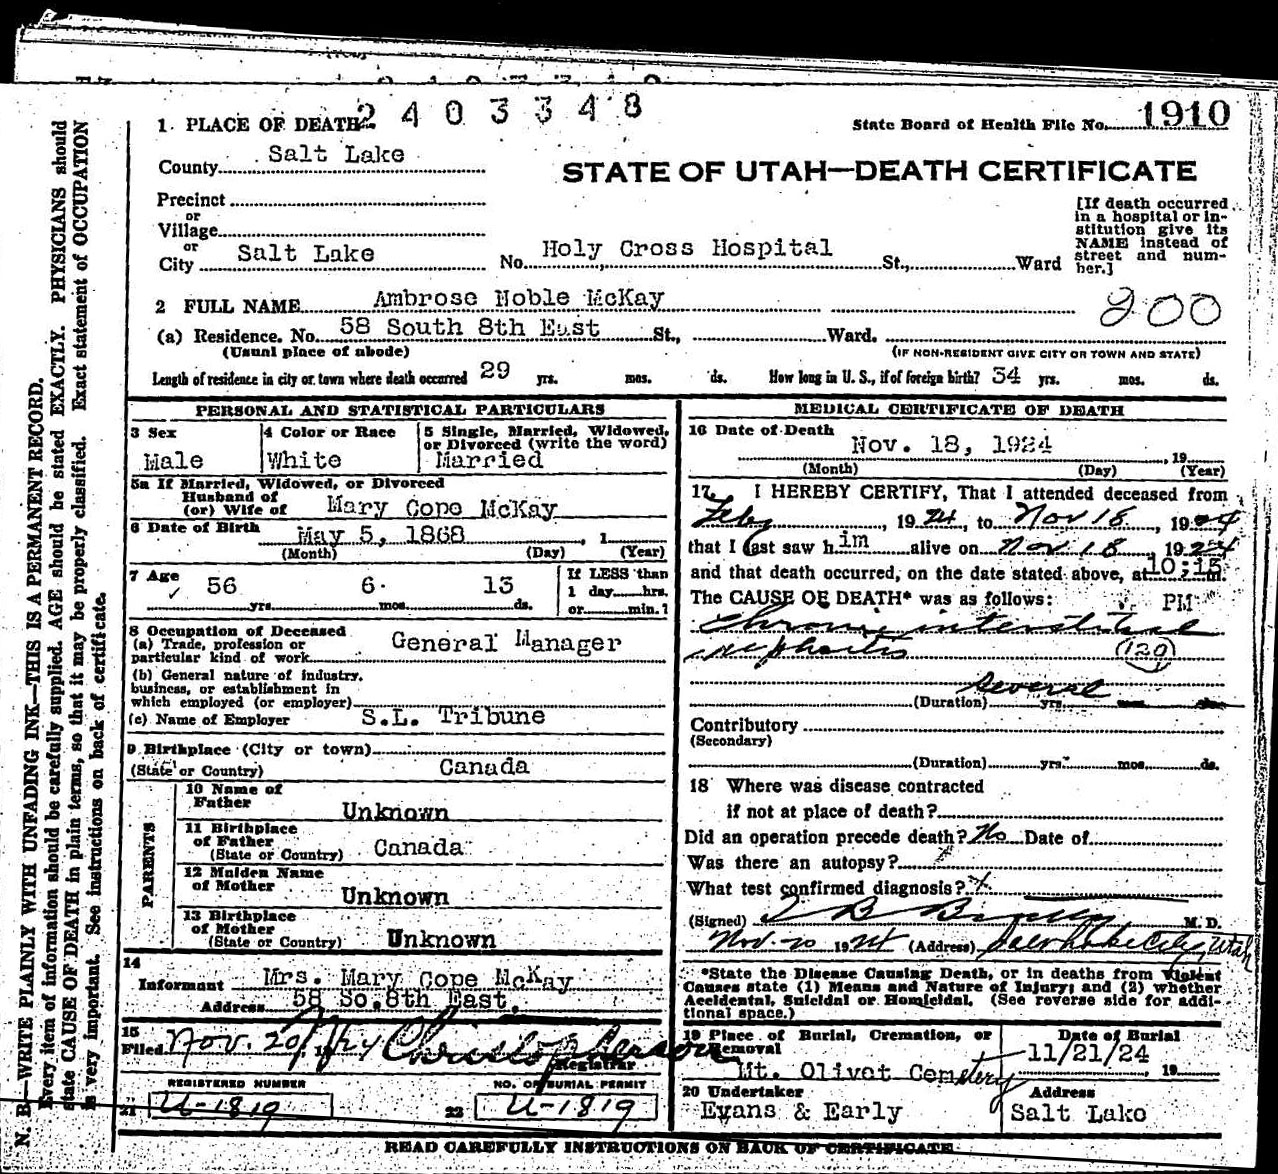 2403348
1 PLACE OF DEATH
State Board of Health File No. 1910
County Salt Lake
STATE OF UTAH—DEATH CERTIFICATE
Precinct
or
Village
or
City Salt Lake No. Holy Cross Hospital St., Ward
[If death occurred
in a hospital or in-
stitution give its
NAME instead of
street and num-
ber.]
2 FULL NAME Ambrose Noble McKay
200
(a) Residence. No. 58 South 8th East St., Ward.
(Usual place of abode) (IF NON-RESIDENT GIVE CITY OR TOWN AND STATE)
Length of residence in city or town where death occurred 29 yrs. mos. ds. How long in U. S., if of foreign birth? 34 yrs. mos. ds.
PERSONAL AND STATISTICAL PARTICULARS
3 Sex
Male
4 Color or Race
White
5 Single, Married, Widowed,
or Divorced (write the word)
Married
5a If Married, Widowed, or Divorced
Husband of
(or) Wife of Mary Cope McKay
6 Date of Birth May 5, 1868 , 1
(Month) (Day) (Year)
7 Age
56 yrs. 6 mos. 13 ds.
If LESS than
1 day hrs.
or min.?
8 Occupation of Deceased
(a) Trade, profession or
particular kind of work General Manager
(b) General nature of industry,
business, or establishment in
which employed (or employer)
(c) Name of Employer S.L. Tribune
9 Birthplace (City or town)
(State or Country) Canada
PARENTS
10 Name of
Father Unknown
11 Birthplace
of Father
(State or Country) Canada
12 Maiden Name
of Mother Unknown
13 Birthplace
of Mother
(State or Country) Unknown
14
Informant Mrs. Mary Cope McKay
Address 58 So.8th East.
15
Filed Nov. 20, 1924 Christopherson
Registrar
REGISTERED NUMBER
21 U-1819
NO. OF BURIAL PERMIT
22 U-1819
MEDICAL CERTIFICATE OF DEATH
16 Date of Death
Nov. 18, 1924 , 19
(Month) (Day) (Year)
17. I HEREBY CERTIFY, That I attended deceased from
Feby , 1924, to Nov 18 , 1924
that I last saw him alive on Nov 18 , 1924
and that death occurred, on the date stated above, at 10:15 m.
The CAUSE OF DEATH* was as follows: PM
Chronic interstitial
nephritis (129)
several
(Duration) yrs. mos. ds.
Contributory
(Secondary)
(Duration) yrs. mos. ds.
18 Where was disease contracted
if not at place of death?
Did an operation precede death? No Date of
Was there an autopsy?
What test confirmed diagnosis?
(Signed) M. D.
Nov. 20 1924 (Address) Salt Lake City, Utah
*State the Disease Causing Death, or in deaths from Violent
Causes state (1) Means and Nature of Injury; and (2) whether
Accidental, Suicidal or Homicidal. (See reverse side for addi-
tional space.)
19 Place of Burial, Cremation, or
Removal
Mt. Olivet Cemetery
Date of Burial
11/21/24 , 19
20 Undertaker
Evans & Early
Address
Salt Lake
READ CAREFULLY INSTRUCTIONS ON BACK OF CERTIFICATE
N. B—WRITE PLAINLY WITH UNFADING INK—THIS IS A PERMANENT RECORD.
Every item of information should be carefully supplied. AGE should be stated EXACTLY. PHYSICIANS should
state CAUSE OF DEATH in plain terms, so that it may be properly classified. Exact statement of OCCUPATION
is very important. See instructions on back of certificate.